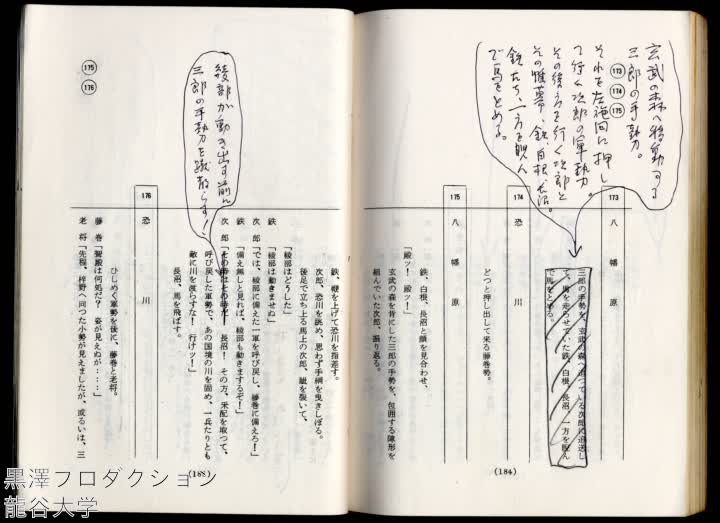 玄武の森へ移動する
三郎の手勢力。
173
174
175
それを左旋回に押し
て行く次郎の軍勢力。
その後方を行く次郎と
その帷幕、鉄、白根、長沼。
鉄たち、一方を睨ん
で馬をとめる。
173
八幡原
三郎の手勢を、玄武の森へ追つている次郎に追送し
て、馬を走らせていた鉄、白根、長沼、一方を睨ん
で馬をとめる。
174
恐川
どつと押し出して来る藤巻勢。
175
八幡原
鉄、白根、長沼と顔を見合わせ、
「殿ッ！　殿ッ！」
玄武の森を背にした三郎の手勢を、包囲する陣形を
組んでいた次郎、振り返る。
(184)
175
176
綾部が動き出す前に
三郎の手勢力を蹴散らす！
鉄、鞭を上げて恐川を指差す。
次郎、恐川を眺め、思わず手綱を曳きしぼる。
後足で立ち上る馬上の次郎、眦を裂いて、
「綾部はどうした」
鉄　「綾部は動きませぬ」
次郎「では、綾部に備えた一軍を呼び戻し、藤巻に備えろ！」
鉄　「備え無しと見れば、綾部も動きまするぞ！」
次郎「その時はその時だ！　長沼！　その方、采配を取つて、
呼び戻した軍勢で、あの国境の川を固め、一兵たりとも
敵に川を渡らすな！　行けッ！」
長沼、馬を飛ばす。
176
恐川
ひしめく軍勢を後に、藤巻と老将。
藤巻「聟殿は何処だ？　姿が見えぬが・・・・」
老将「先程、梓野へ向つた小勢が見えましたが、或るいは、三
(185)
黒澤プロダクション
龍谷大学